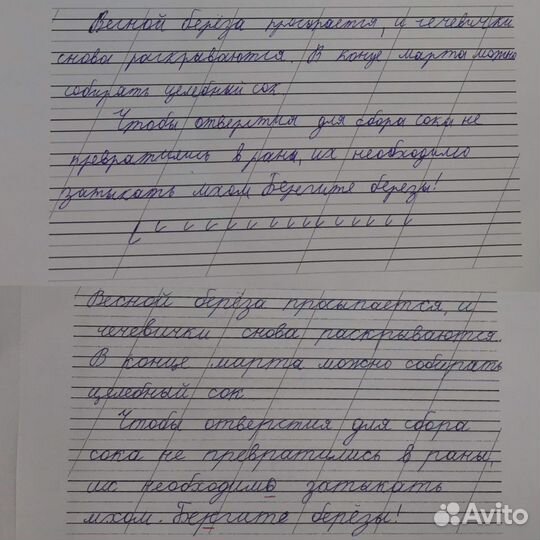 Весной берёза просыпается, и чечевички
снова раскрываются. В конце марта можно
собирать целебный сок
Чтобы отверстия для сбора сока не
превратились в раны, их необходимо
затыкать мхом. Бенгите березы!
Весной берёза просыпается, и
чечевички снова раскрываются.
В конце марта можно собирать
целебный сок
Чтобы отверстия для сбора
сока не превратились в раны,
их необходимо затыкать
мхом. Бенгите берёзы!
Avito